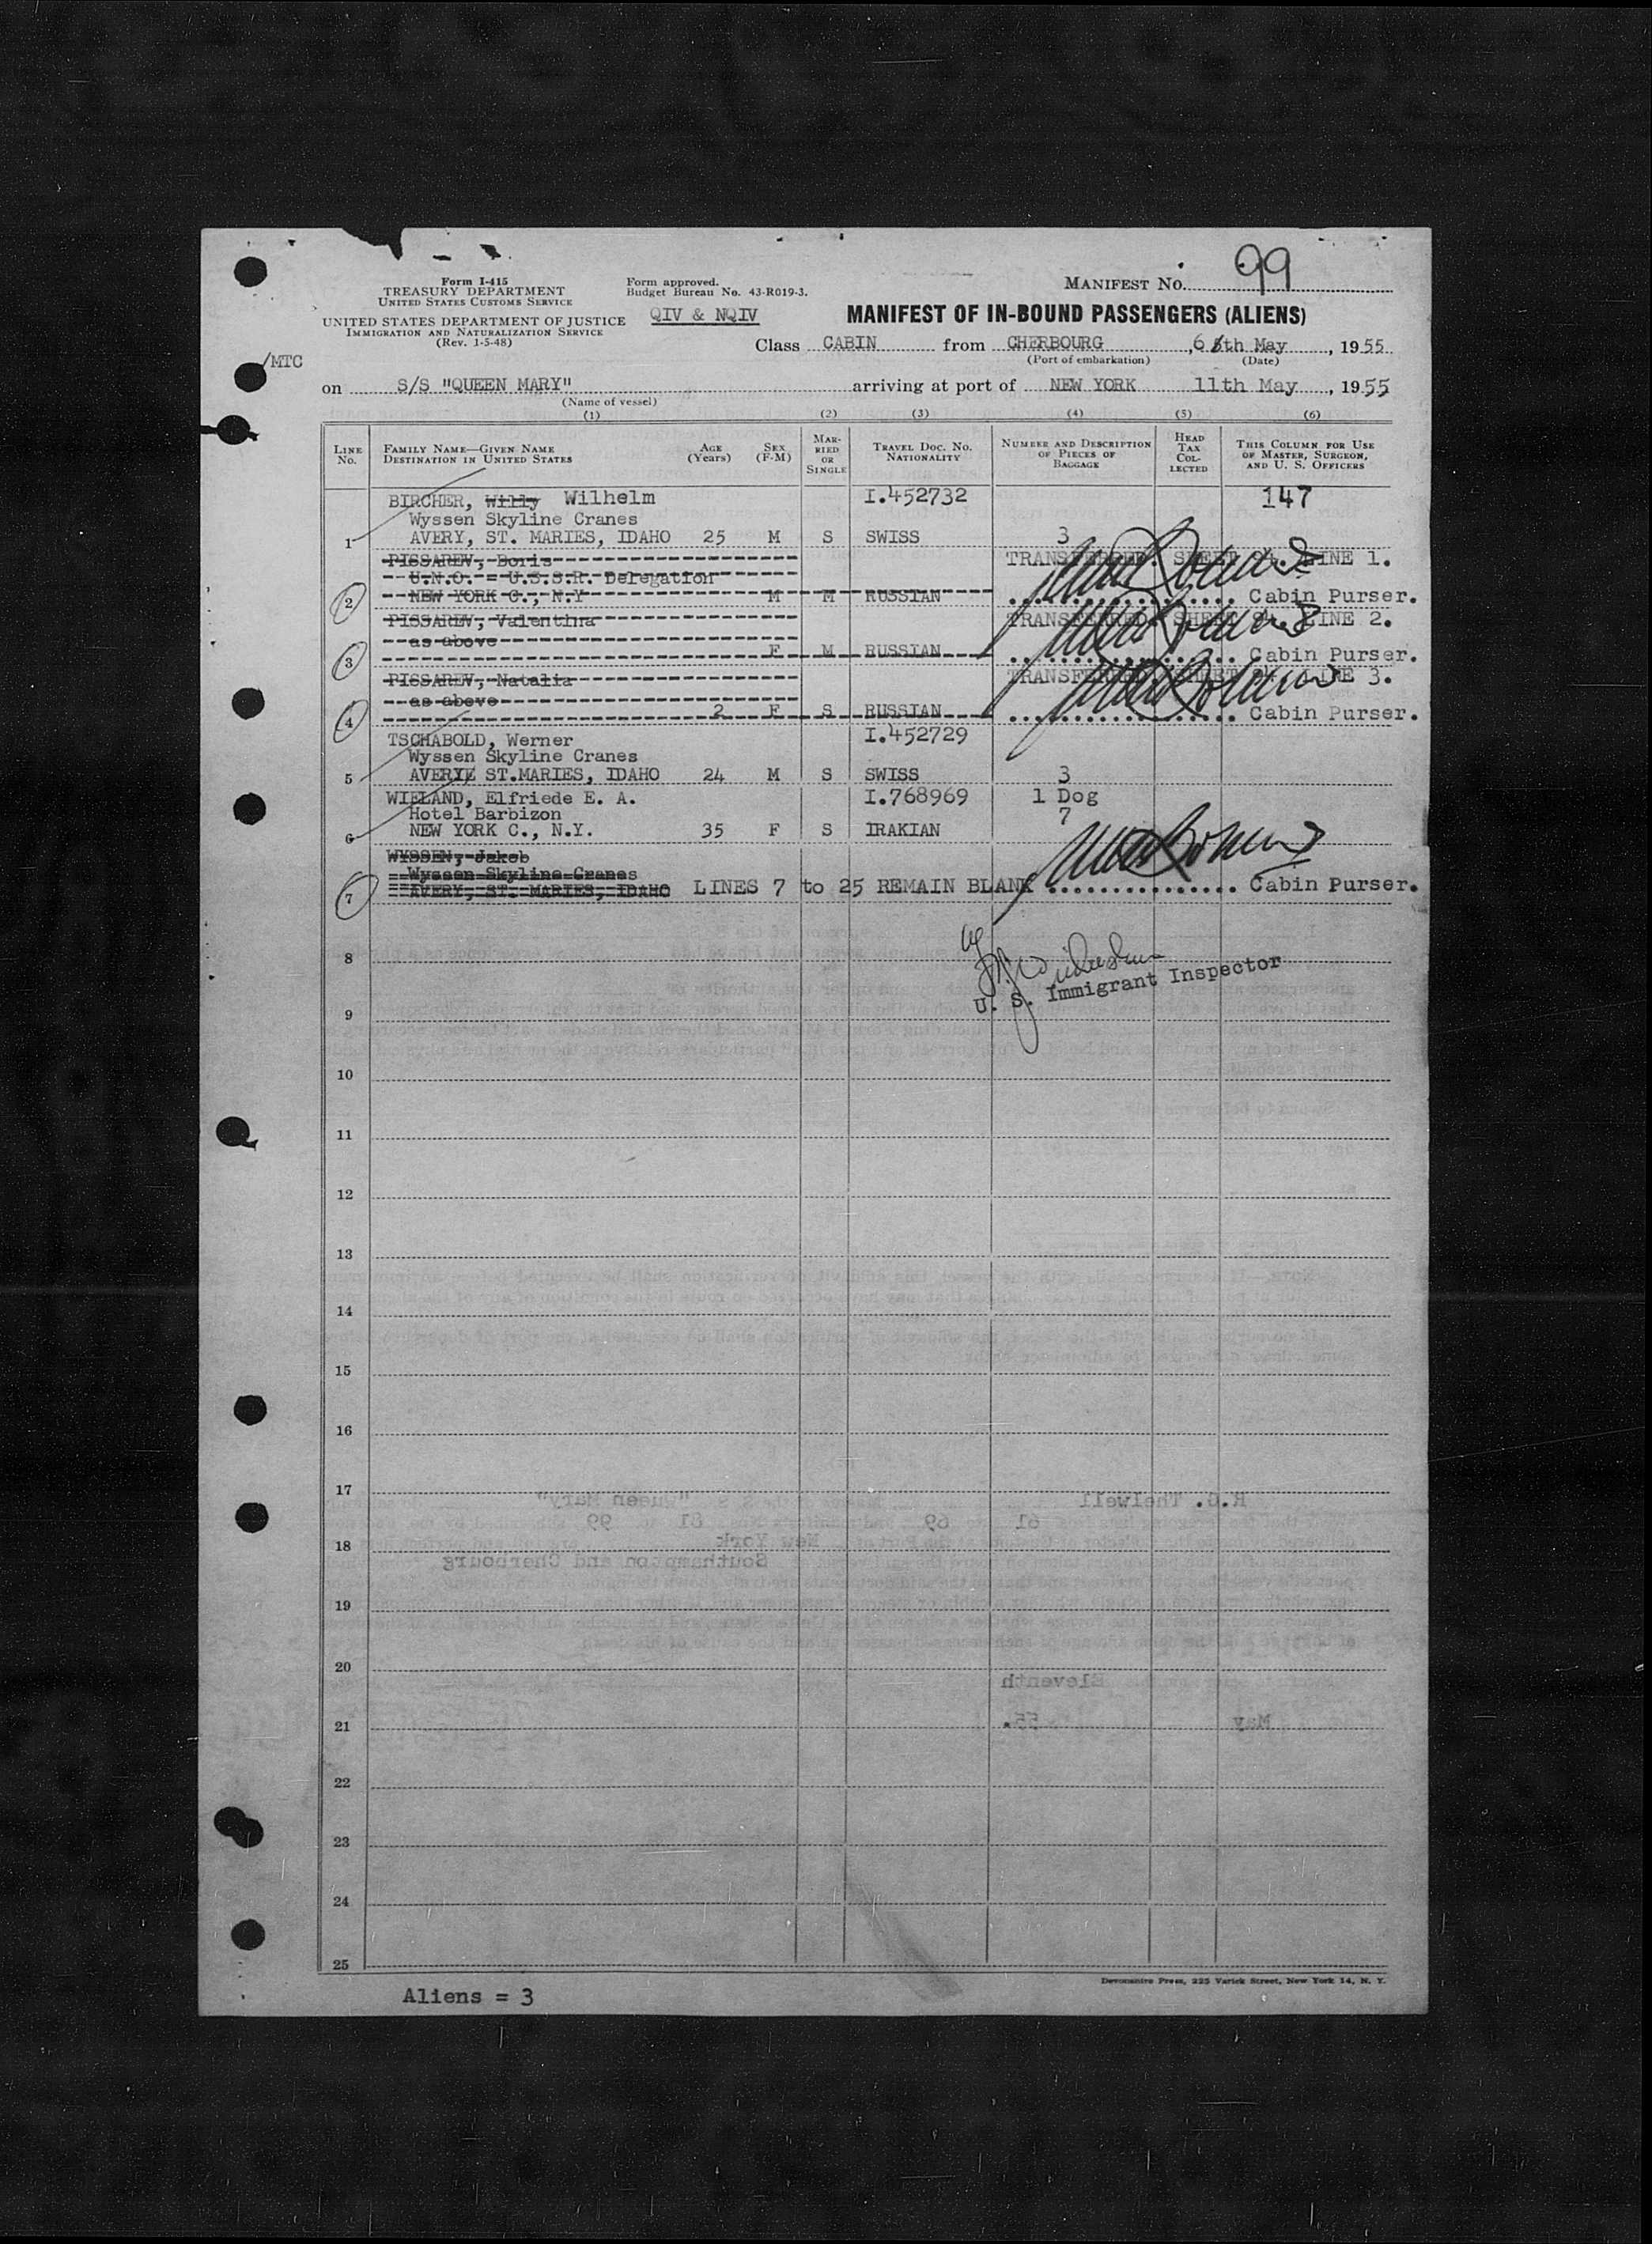 99
Form I-415
TREASURY DEPARTMENT
UNITED STATES CUSTOMS SERVICE
Form approved.
Budget Bureau No. 43-R019-3.
MANIFEST No.
UNITED STATES DEPARTMENT OF JUSTICE
IMMIGRATION AND NATURALIZATION SERVICE
(Rev. 1-5-48)
QIV & NQIV
MANIFEST OF IN-BOUND PASSENGERS (ALIENS)
/MTC
Class CABIN from CHERBOURG, 6th May, 1955
(Port of embarkation) (Date)
on S/S "QUEEN MARY" arriving at port of NEW YORK 11th May, 1955
(Name of vessel)
(1) (2) (3) (4) (5) (6)
LINE No. FAMILY NAME—GIVEN NAME DESTINATION IN UNITED STATES AGE (Years) SEX (F-M) MARRIED OR SINGLE TRAVEL DOC. NO. NATIONALITY NUMBER AND DESCRIPTION OF PIECES OF BAGGAGE HEAD TAX COLLECTED THIS COLUMN FOR USE OF MASTER, SURGEON, AND U. S. OFFICERS
BIRCHER, Willy Wilhelm I.452732 147
Wyssen Skyline Cranes
1 AVERY, ST. MARIES, IDAHO 25 M S SWISS 3
PISSAREV, Boris TRANSFERRED SHEET LINE 1.
U.N.O. = U.S.S.R. Delegation
2 NEW YORK C., N.Y M M RUSSIAN Cabin Purser.
PISSAREV, Valentina TRANSFERRED SHEET LINE 2.
as above
3 F M RUSSIAN Cabin Purser.
PISSAREV, Natalia TRANSFERRED SHEET LINE 3.
as above
4 2 F S RUSSIAN Cabin Purser.
TSCHABOLD, Werner I.452729
Wyssen Skyline Cranes
5 AVERY ST.MARIES, IDAHO 24 M S SWISS 3
WIELAND, Elfriede E. A. I.768969 1 Dog
Hotel Barbizon 7
6 NEW YORK C., N.Y. 35 F S IRAKIAN
WYSSEN, Jakob
Wyssen Skyline Cranes
7 AVERY, ST. MARIES, IDAHO LINES 7 to 25 REMAIN BLANK Cabin Purser.
8
U. S. Immigrant Inspector
9
10
11
12
13
14
15
16
17
R.G. Thelwell "Queen Mary"
61 69 81 99
18 New York
Southampton and Cherbourg
19
20
Eleventh
21 May 55.
22
23
24
25
Devonshire Press, 225 Varick Street, New York 14, N. Y.
Aliens = 3